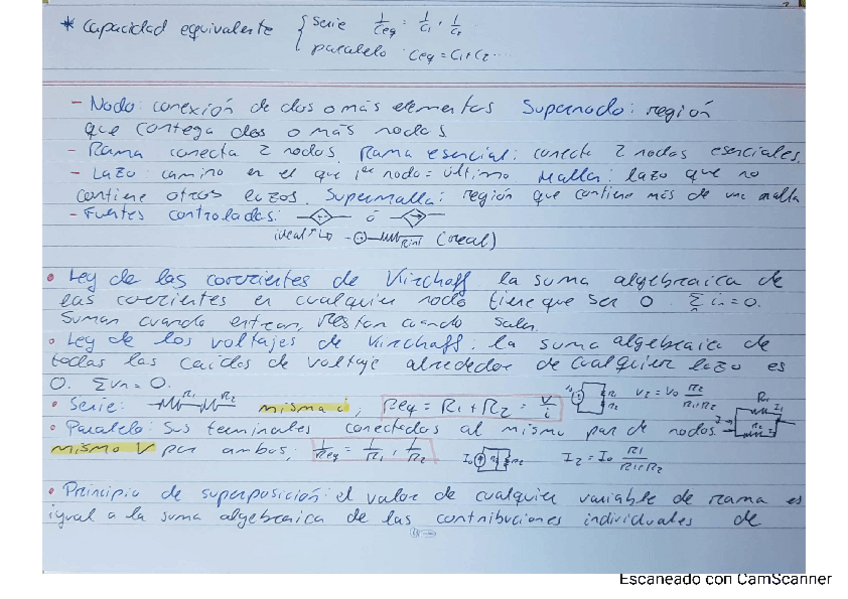 * Capacidad equivalente { serie 1/Ceq = 1/C1 + 1/C2
paralelo Ceq = C1+C2 ...
- Nodo: conexión de dos o más elementos Supernodo: región
que contega dos o más nodos
- Rama conecta 2 nodos. Rama esencial: conecta 2 nodos esenciales.
- Lazo: camino en el que 1er nodo = último Malla: lazo que no
contiene otros lazos. Supermalla: región que contiene más de una malla
- Fuentes controladas: ó
ideal Rint (real)
• Ley de las corrientes de Kirchoff la suma algebraica de
las corrientes en cualquier nodo tiene que ser 0. Σ in = 0.
Suman cuando entran, restan cuando salen.
• Ley de los voltajes de Kirchoff: la suma algebraica de
todas las caídas de voltaje alrededor de cualquier lazo es
0. Σ vn = 0.
• Serie: R1 R2 misma i, Req = R1 + R2 = V/i V2 = V0 R2/(R1+R2) R1 I1
• Paralelo: Sus terminales conectados al mismo par de nodos. R2
mismo V por ambos, 1/Req = 1/R1 + 1/R2 I0 R1 R2 I2 = I0 R1/(R1+R2)
• Principio de superposición: el valor de cualquier variable de rama es
igual a la suma algebraica de las contribuciones individuales de
Escaneado con CamScanner